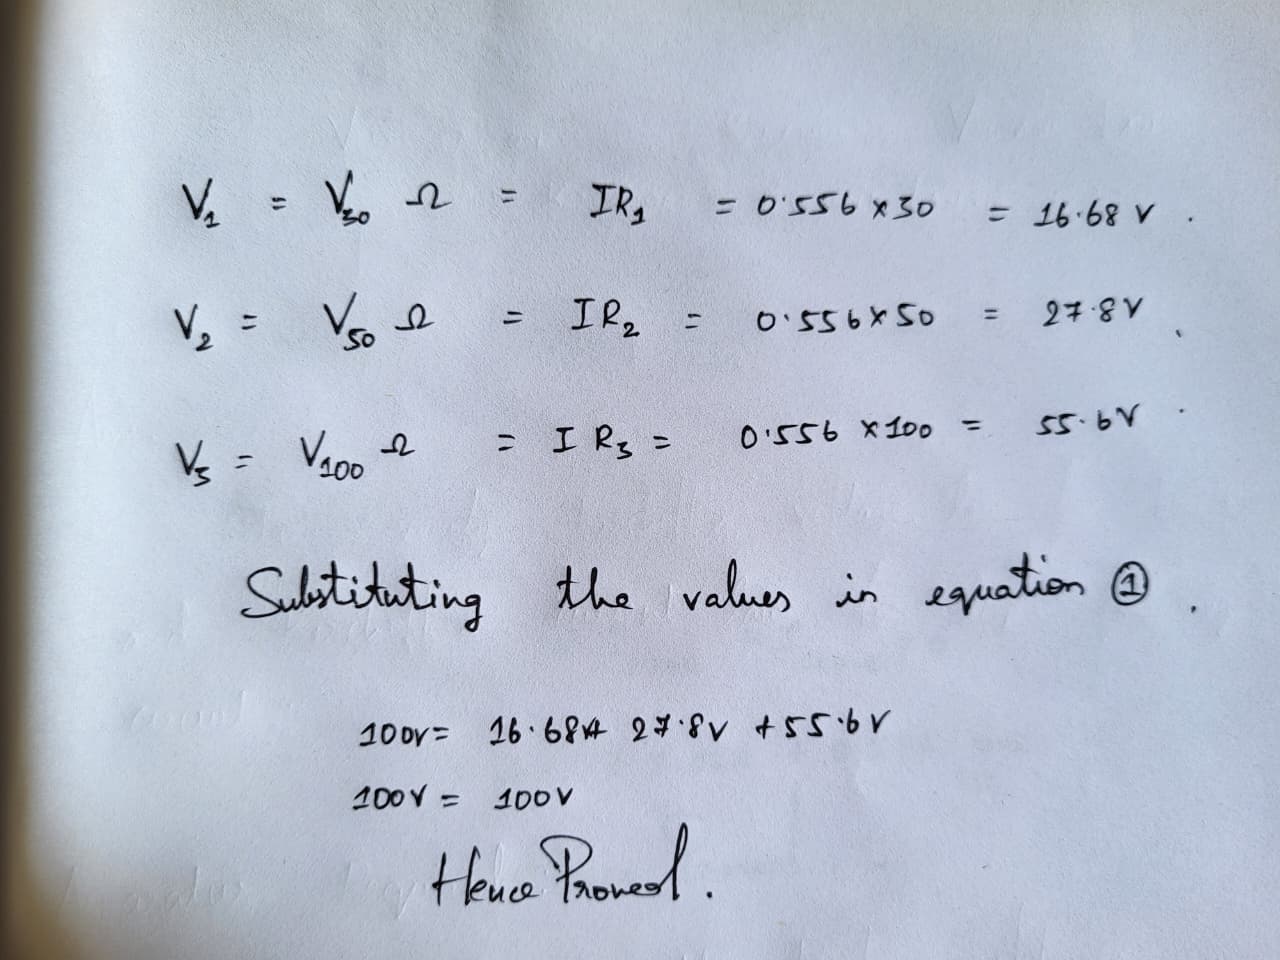 V₁ = V₃₀ Ω = IR₁ = 0.556 x 30 = 16.68 V .
V₂ = V₅₀ Ω = IR₂ = 0.556 x 50 = 27.8 V .
V₃ = V₁₀₀ Ω = I R₃ = 0.556 x 100 = 55.6 V .
Substituting the values in equation ① .
100V = 16.68V + 27.8V + 55.6 V
100V = 100V
Hence Proved .